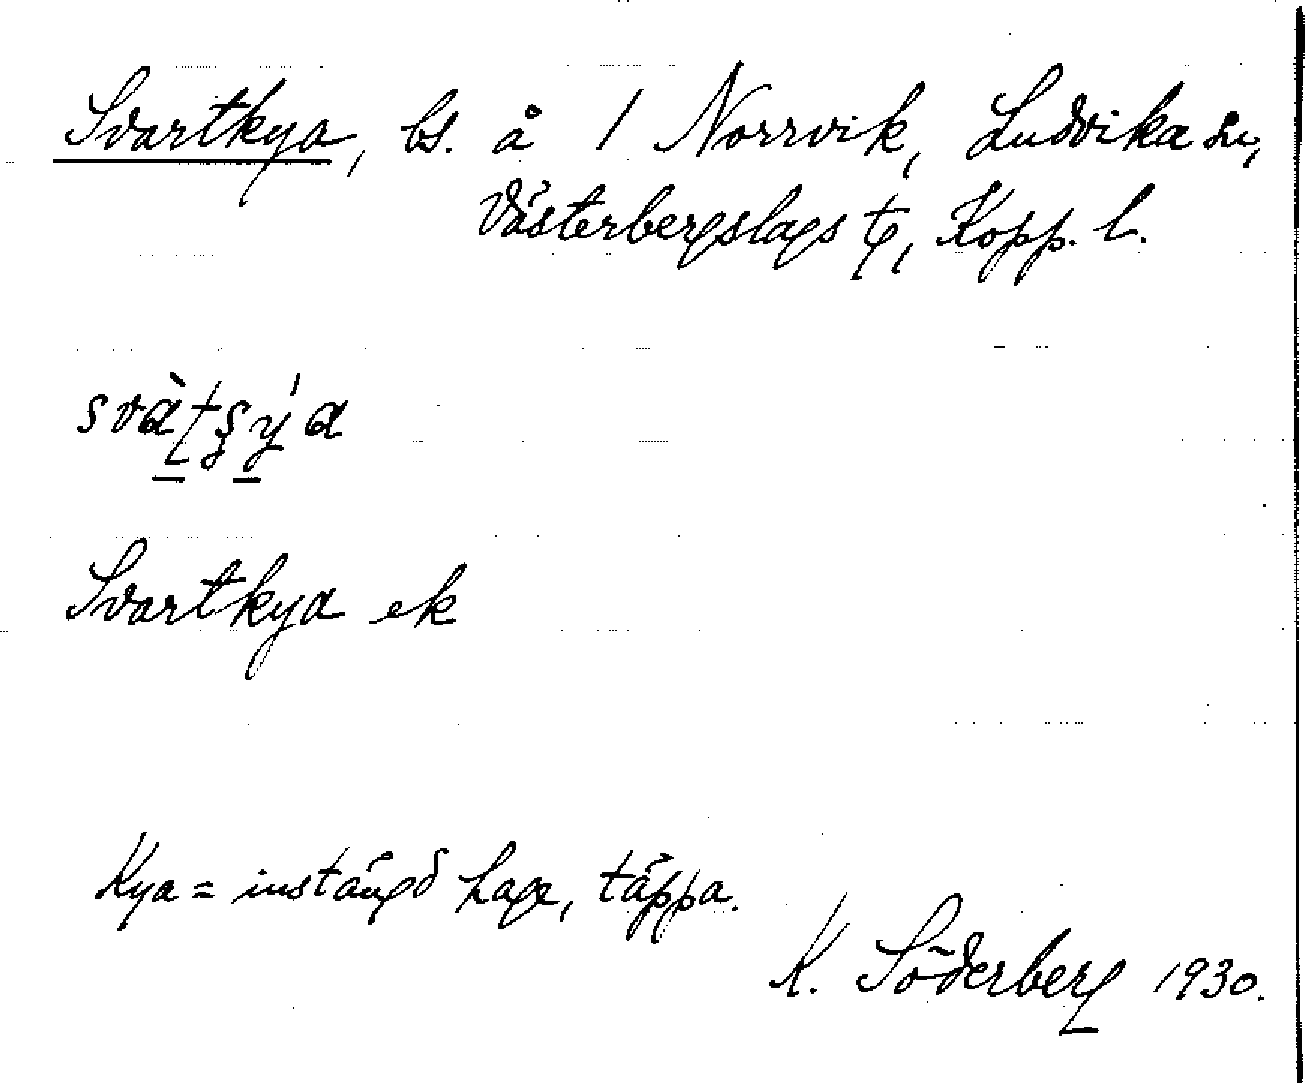 Svartkya, bs. å 1 Norrvik, Ludvika sn,
Västerbergslags tg, Kopp. l.
svàʈʂy̍a
Svartkya ek
Kya = instängd hage, täppa.
K. Söderberg 1930.